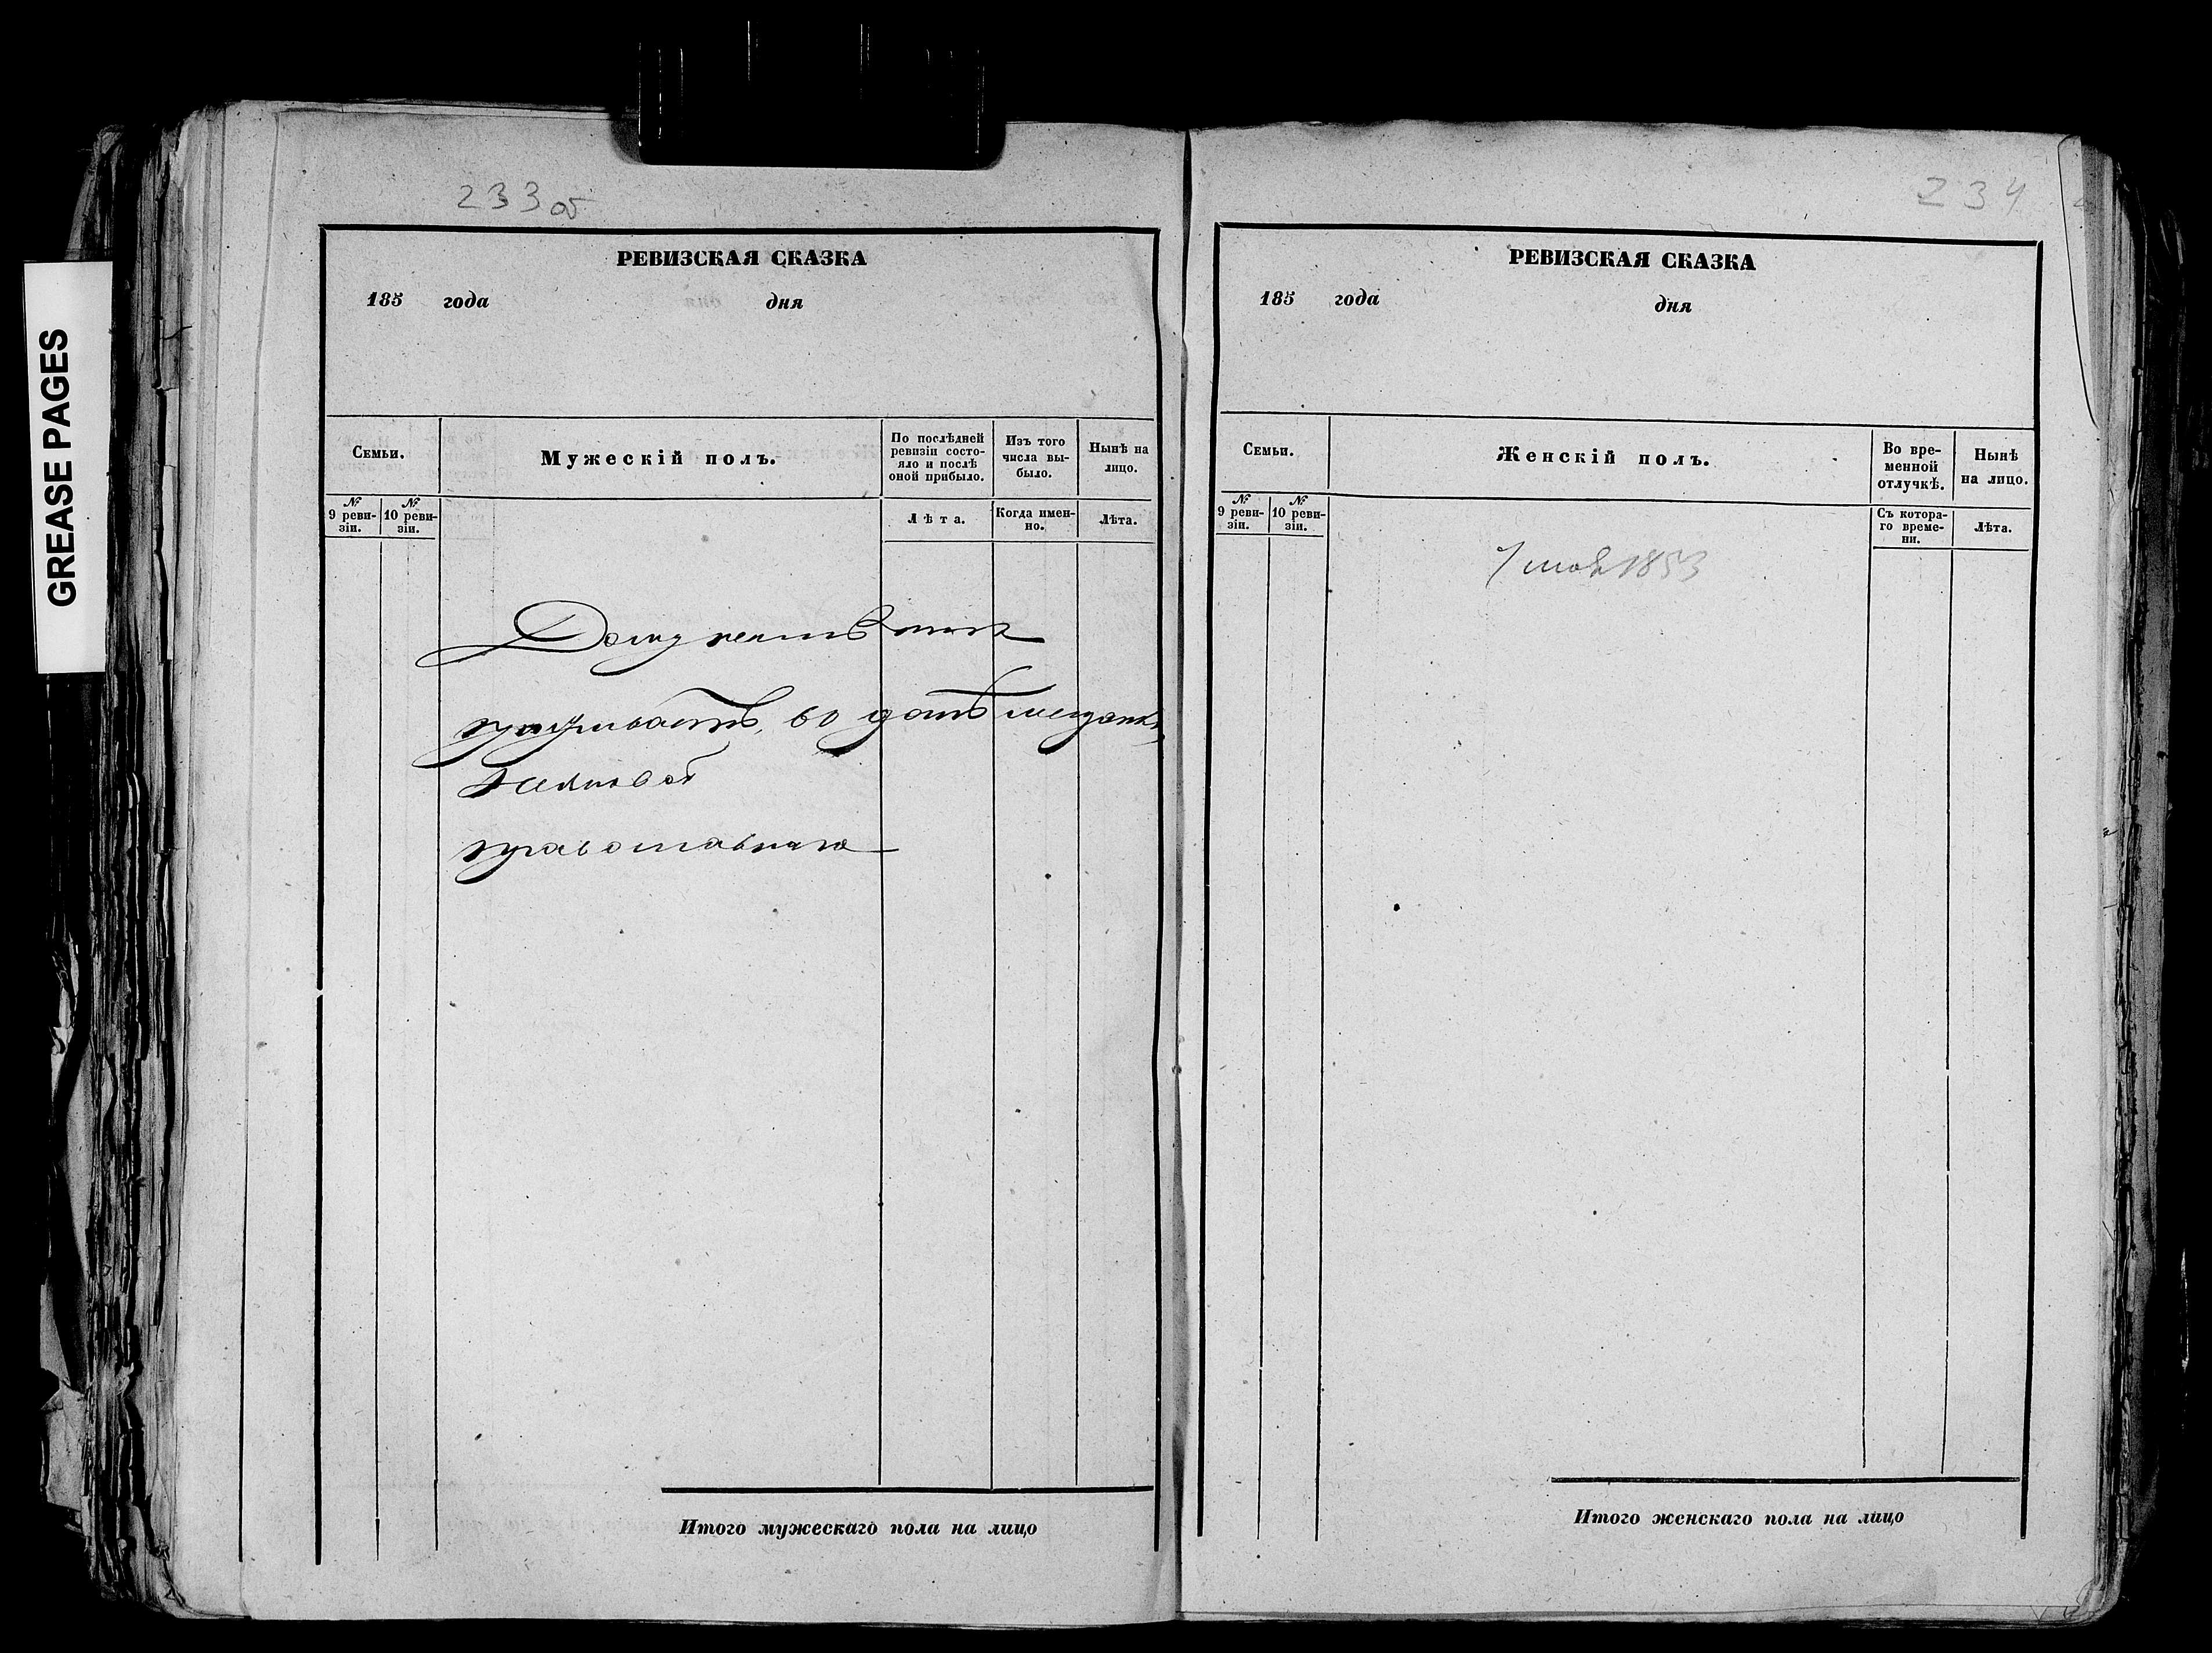 GREASE PAGES
233 об
РЕВИЗСКАЯ СКАЗКА
185 года дня
Семьи.
Мужескій полъ.
По послѣдней ревизіи состояло и послѣ оной прибыло.
Изъ того числа выбыло.
Нынѣ на лицо.
№ 9 ревизіи.
№ 10 ревизіи.
Лѣта.
Когда именно.
Лѣта.
Документъ
проживаетъ, во
православнаго
Итого мужескаго пола на лицо
234
РЕВИЗСКАЯ СКАЗКА
185 года дня
Семьи.
Женскій полъ.
Во временной отлучкѣ.
Нынѣ на лицо.
№ 9 ревизіи.
№ 10 ревизіи.
Съ котораго времени.
Лѣта.
1853
Итого женскаго пола на лицо